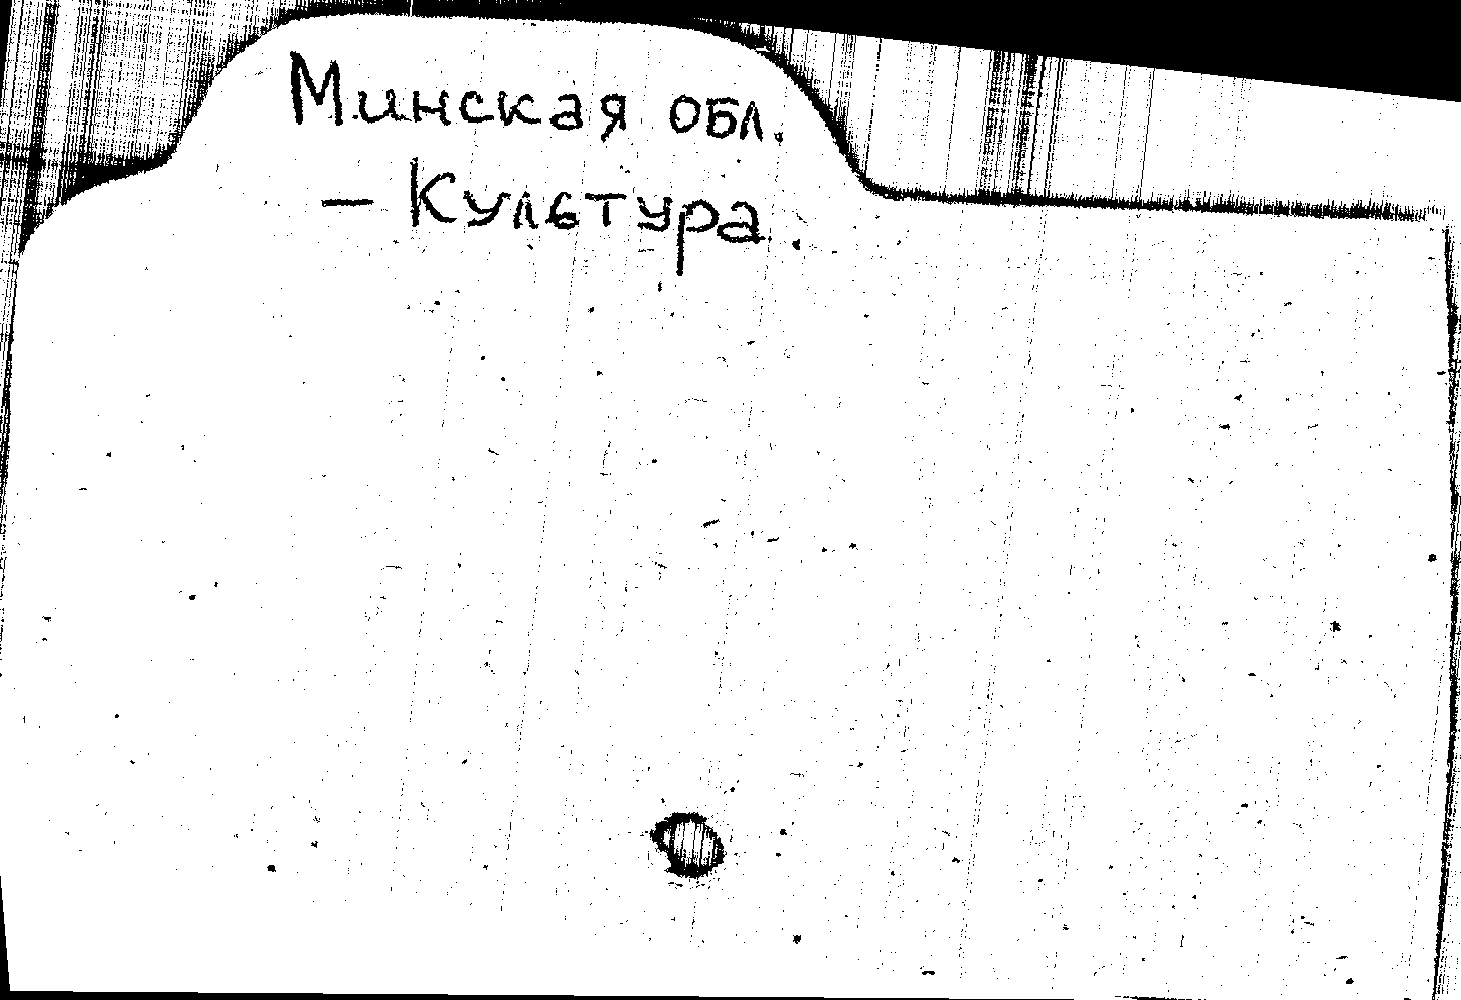 Минская обл.
— Культура.